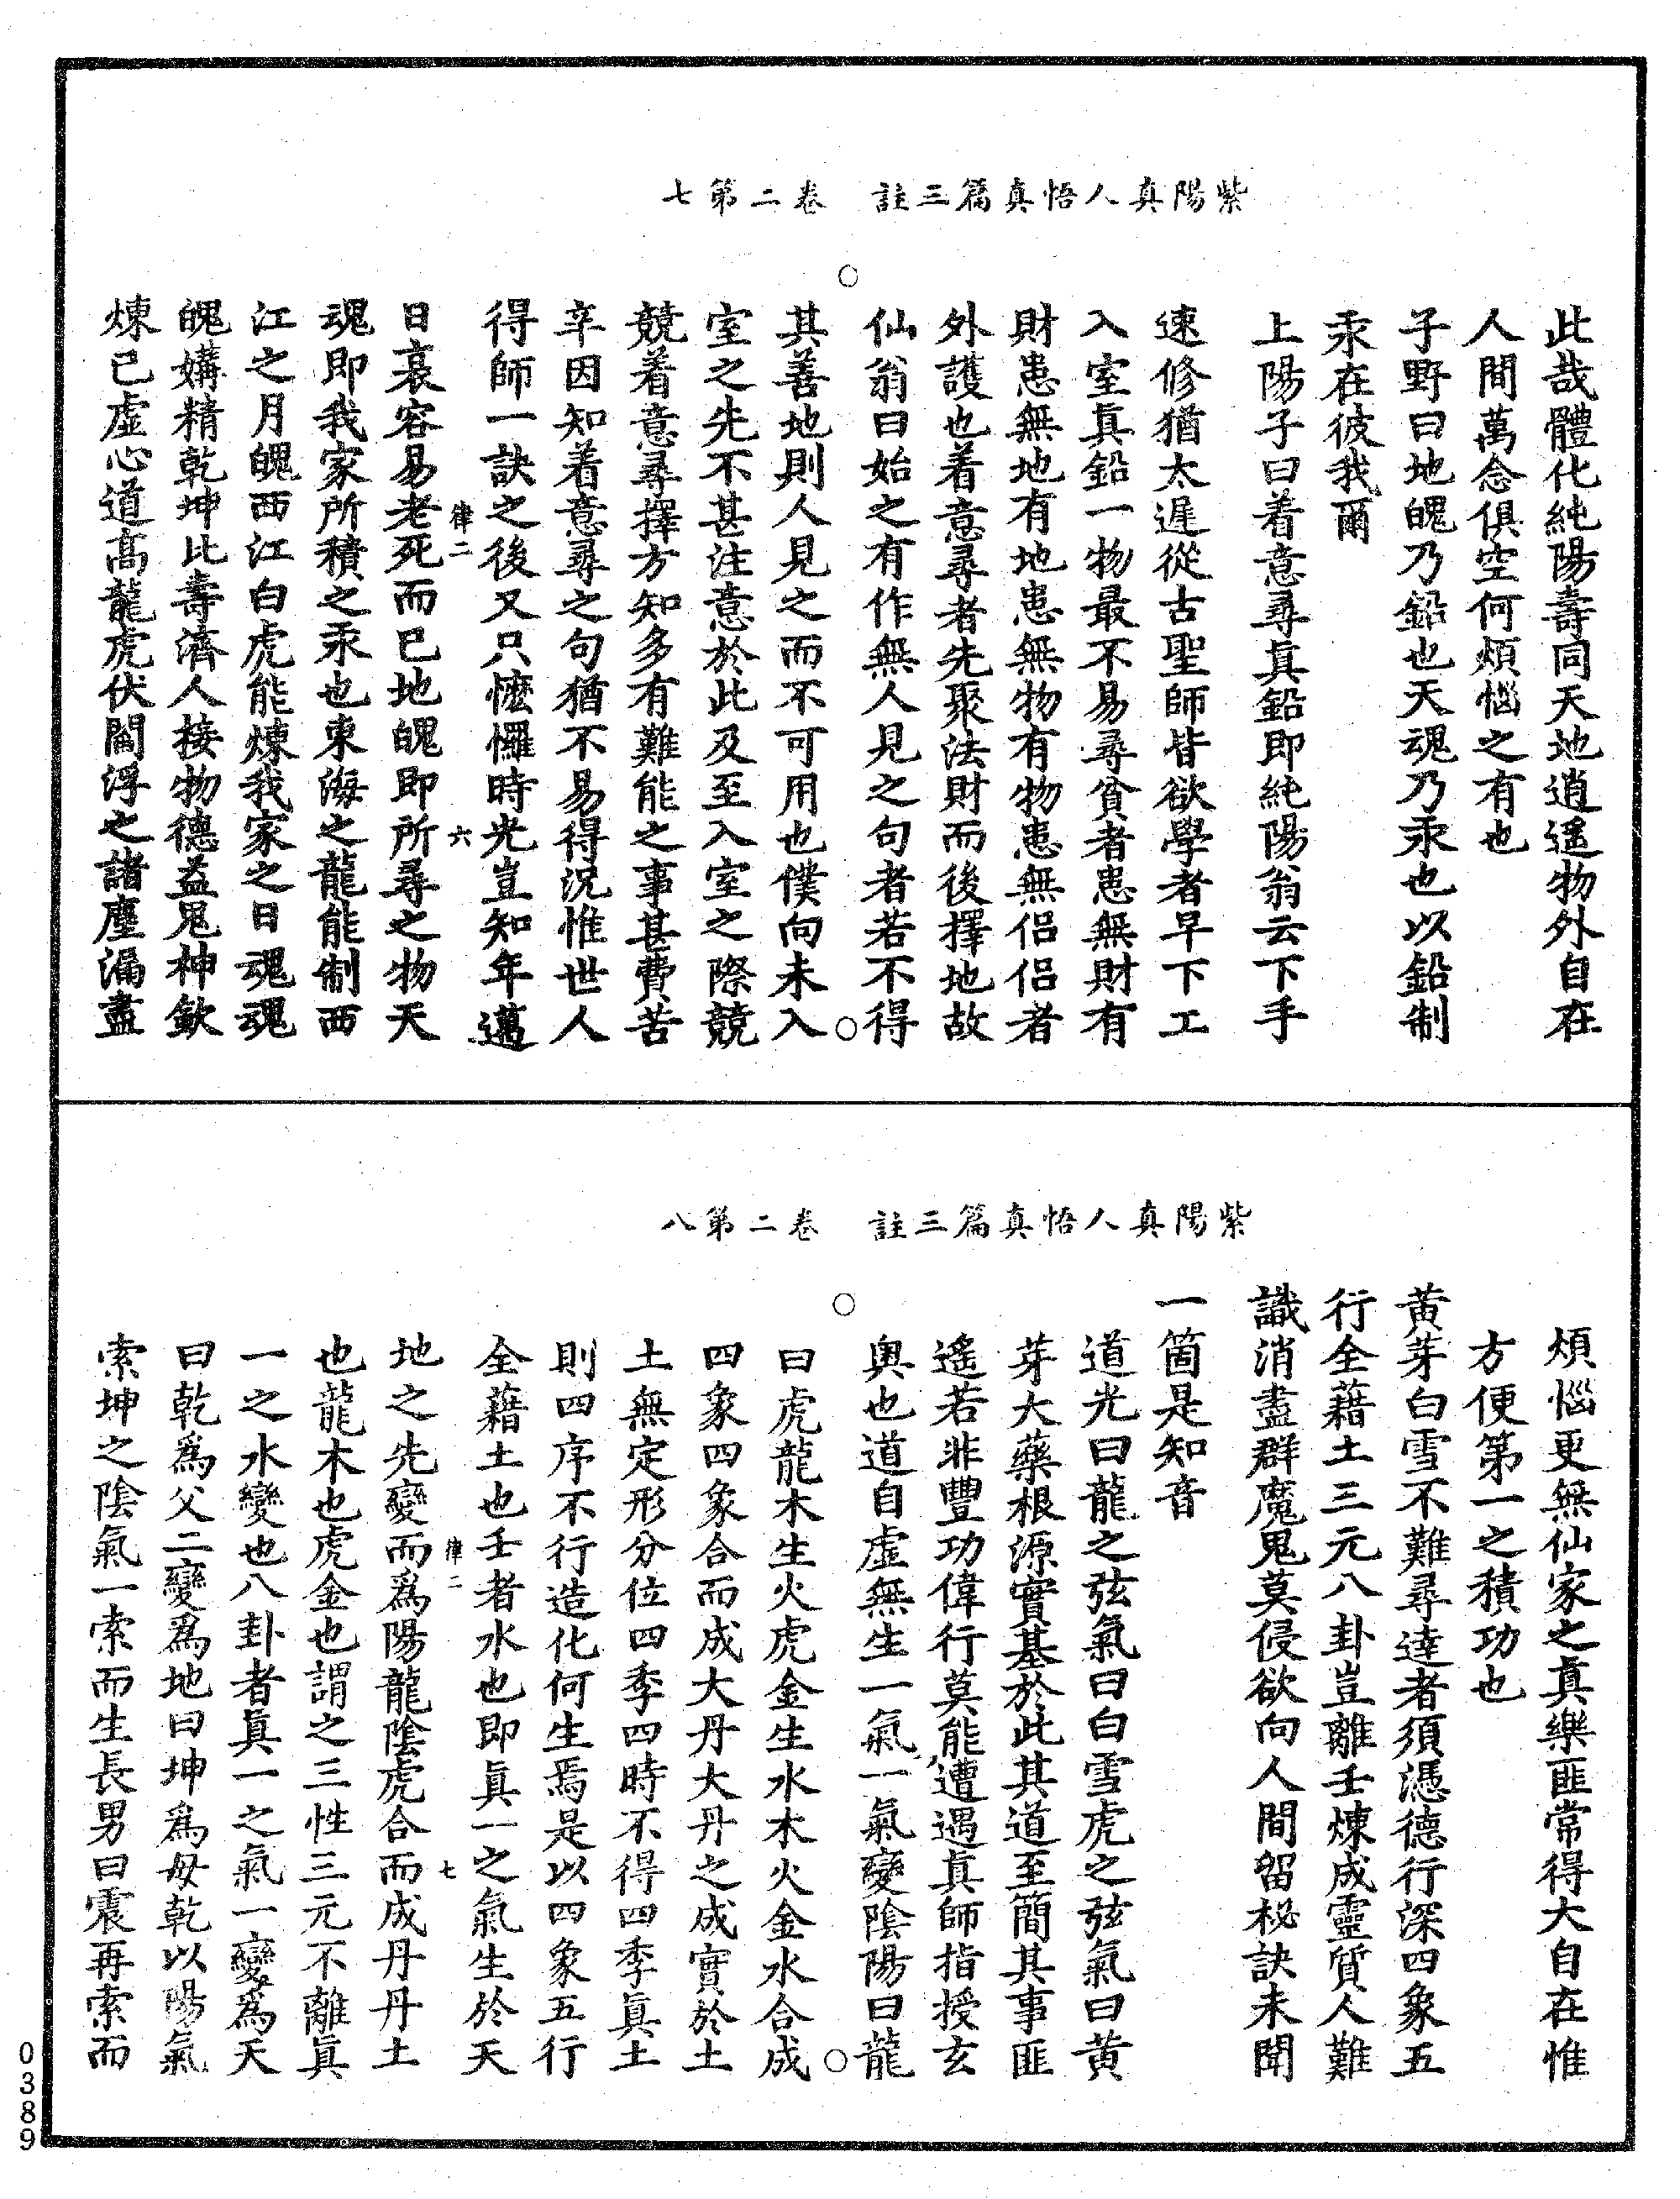 紫陽真人悟真篇三註　卷二第七
此哉體化純陽壽同天地逍遥物外自在
人間萬念俱空何煩惱之有也
子野曰地魄乃鉛也天魂乃汞也以鉛制
汞在彼我爾
上陽子曰着意尋真鉛即純陽翁云下手
速修猶太遲從古聖師皆欲學者早下工
入室真鉛一物最不易尋貧者患無財有
財患無地有地患無物有物患無侣侣者
外護也着意尋者先聚法財而後擇地故
仙翁曰始之有作無人見之句者若不得
其善地則人見之而不可用也僕向未入
室之先不甚注意於此及至入室之際競
競着意尋擇方知多有難能之事甚費苦
辛因知着意尋之句猶不易得況惟世人
得師一訣之後又只懡㦬時光豈知年邁
律二　六
日衰容易老死而已地魄即所尋之物天
魂即我家所積之汞也東海之龍能制西
江之月魄西江白虎能煉我家之日魂魂
魄媾精乾坤比壽濟人接物德益鬼神欽
煉已虚心道高龍虎伏閻浮之諸塵漏盡
紫陽真人悟真篇三註　卷二第八
煩惱更無仙家之真樂匪常得大自在惟
方便第一之積功也
黄芽白雪不難尋達者須憑德行深四象五
行全藉土三元八卦豈離壬煉成靈質人難
識消盡群魔鬼莫侵欲向人間留秘訣未聞
一箇是知音
道光曰龍之弦氣曰白雪虎之弦氣曰黄
芽大藥根源實基於此其道至簡其事匪
遙若非豐功偉行莫能遭遇真師指授玄
奥也道自虚無生一氣一氣變陰陽曰龍
曰虎龍木生火虎金生水木火金水合成
四象四象合而成大丹大丹之成實於土
土無定形分位四季四時不得四季真土
則四序不行造化何生焉是以四象五行
全藉土也壬者水也即真一之氣生於天
律二　七
地之先變而爲陽龍陰虎合而成丹丹土
也龍木也虎金也謂之三性三元不離真
一之水變也八卦者真一之氣一變爲天
曰乾爲父二變爲地曰坤爲母乾以陽氣
索坤之陰氣一索而生長男曰震再索而
0389